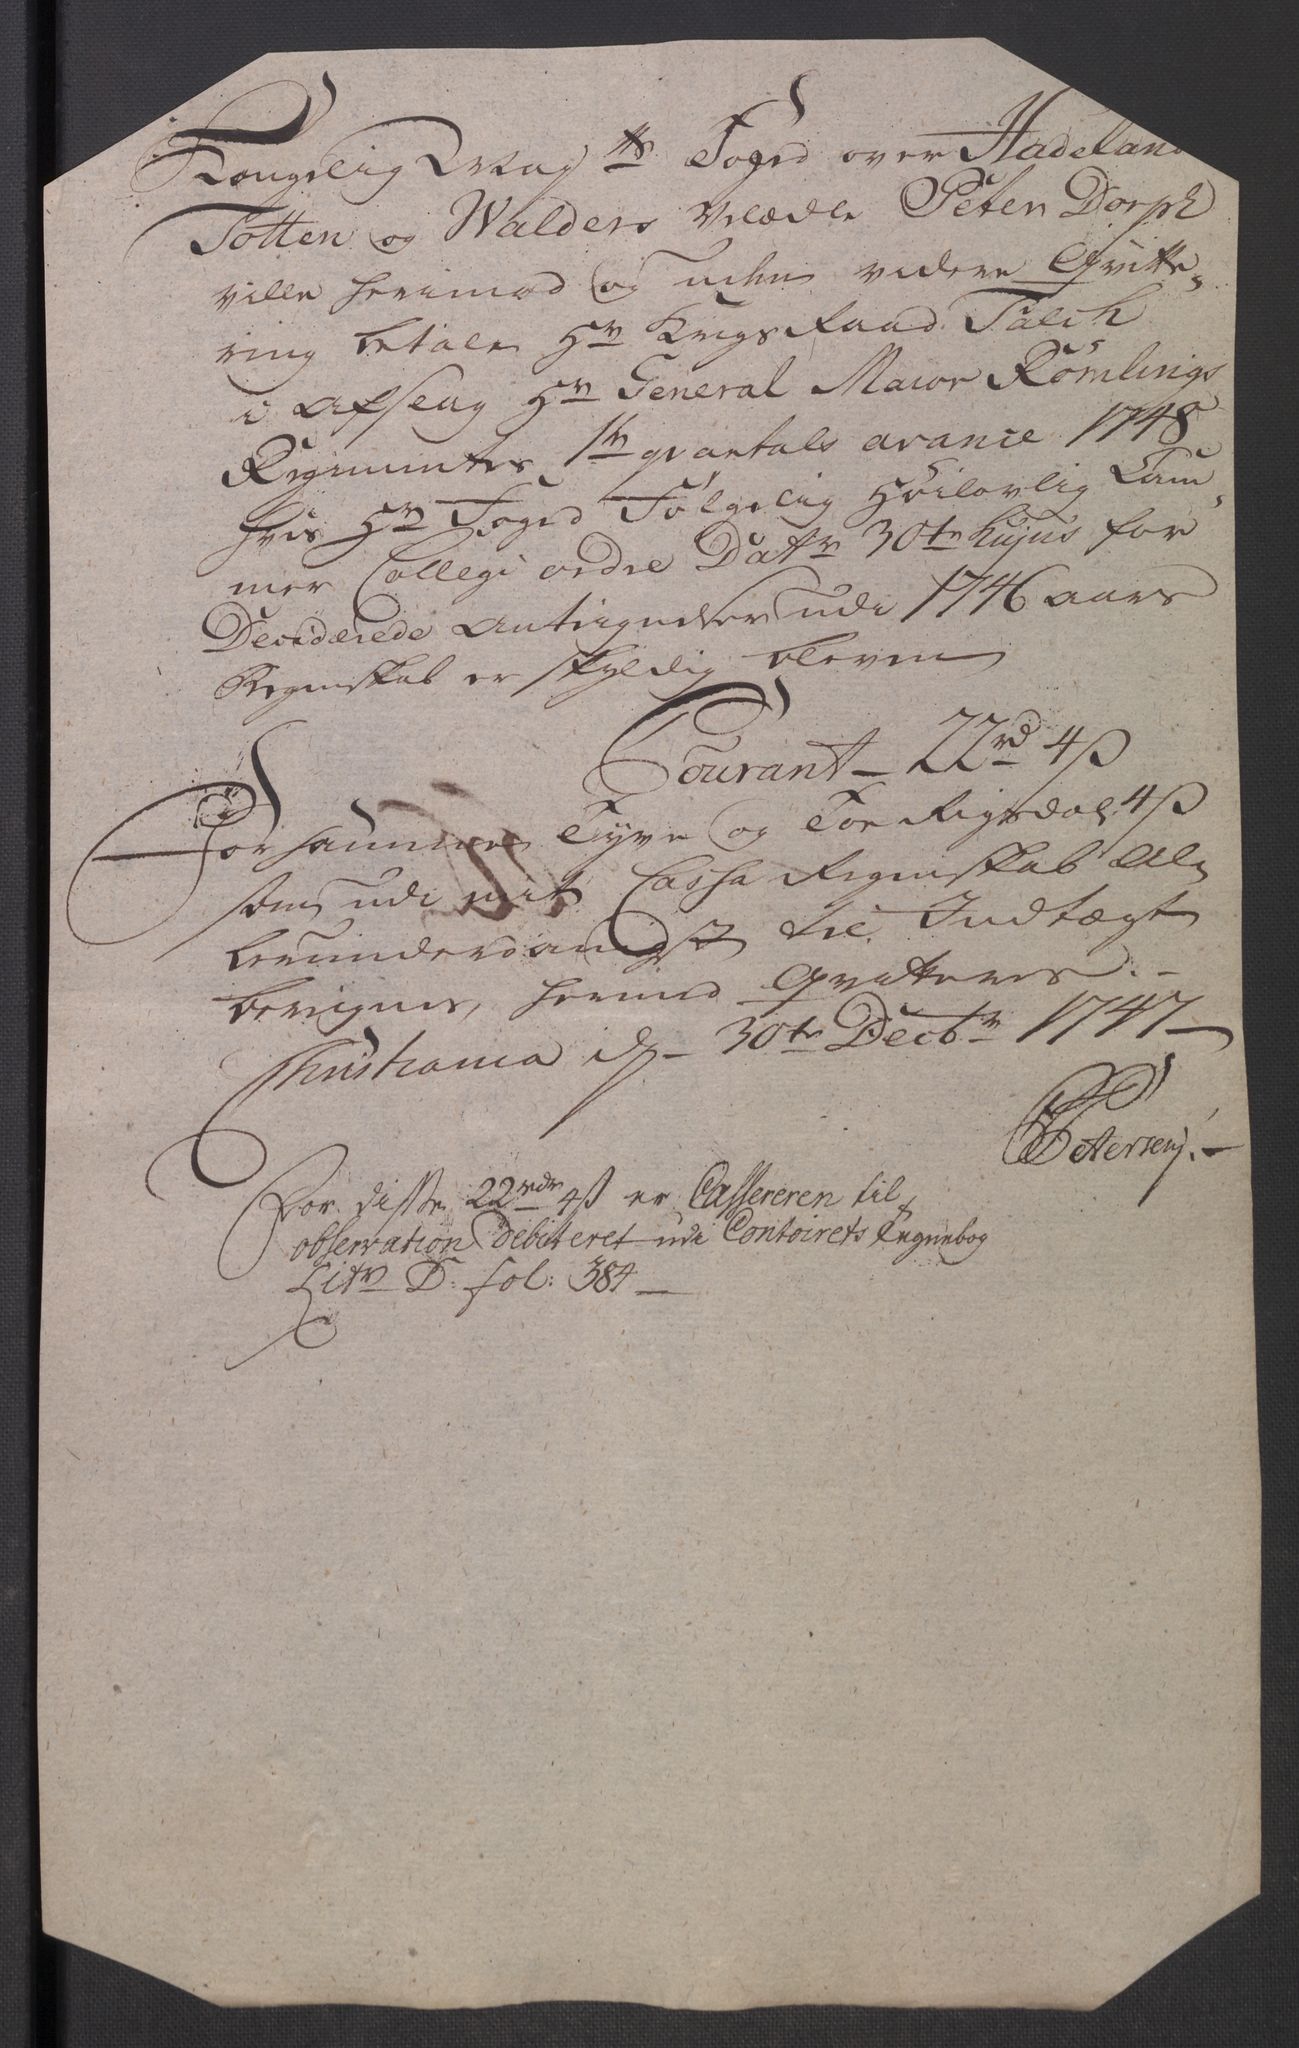 Kongelig Mayts Foged over Hadeland
Totten og Walders Velædle Peter Dorph
ville herimod og uden videre Qvitte-
ring betale Hr Krigs Raad Falch
i Afseng Hr General Maior Römlings
Regimentes 1te qvartals avance 1748
hvis Hr Foged Følgelig Höilovlig Cam-
mer Collegi ordre Datr 30te hujus for
Deciderede Antegnelser udi 1746 aars
Regenskab er skyldig bleven
Courant – 22rd 4ß
For hannem Tyve og Toe Rigsdal. 4ß
som udi mit Cassa Regenskab Aller
underdanigst til Indtægt
beregnes, hermed Qvitteres. –
Christiania d – 30te Decbr 1747 –
Petersen. –
For disse 22rdr 4ß er Cassereren til
observation Debiteret udi Contoirets Regnebog
Litr D: fol: 384 –